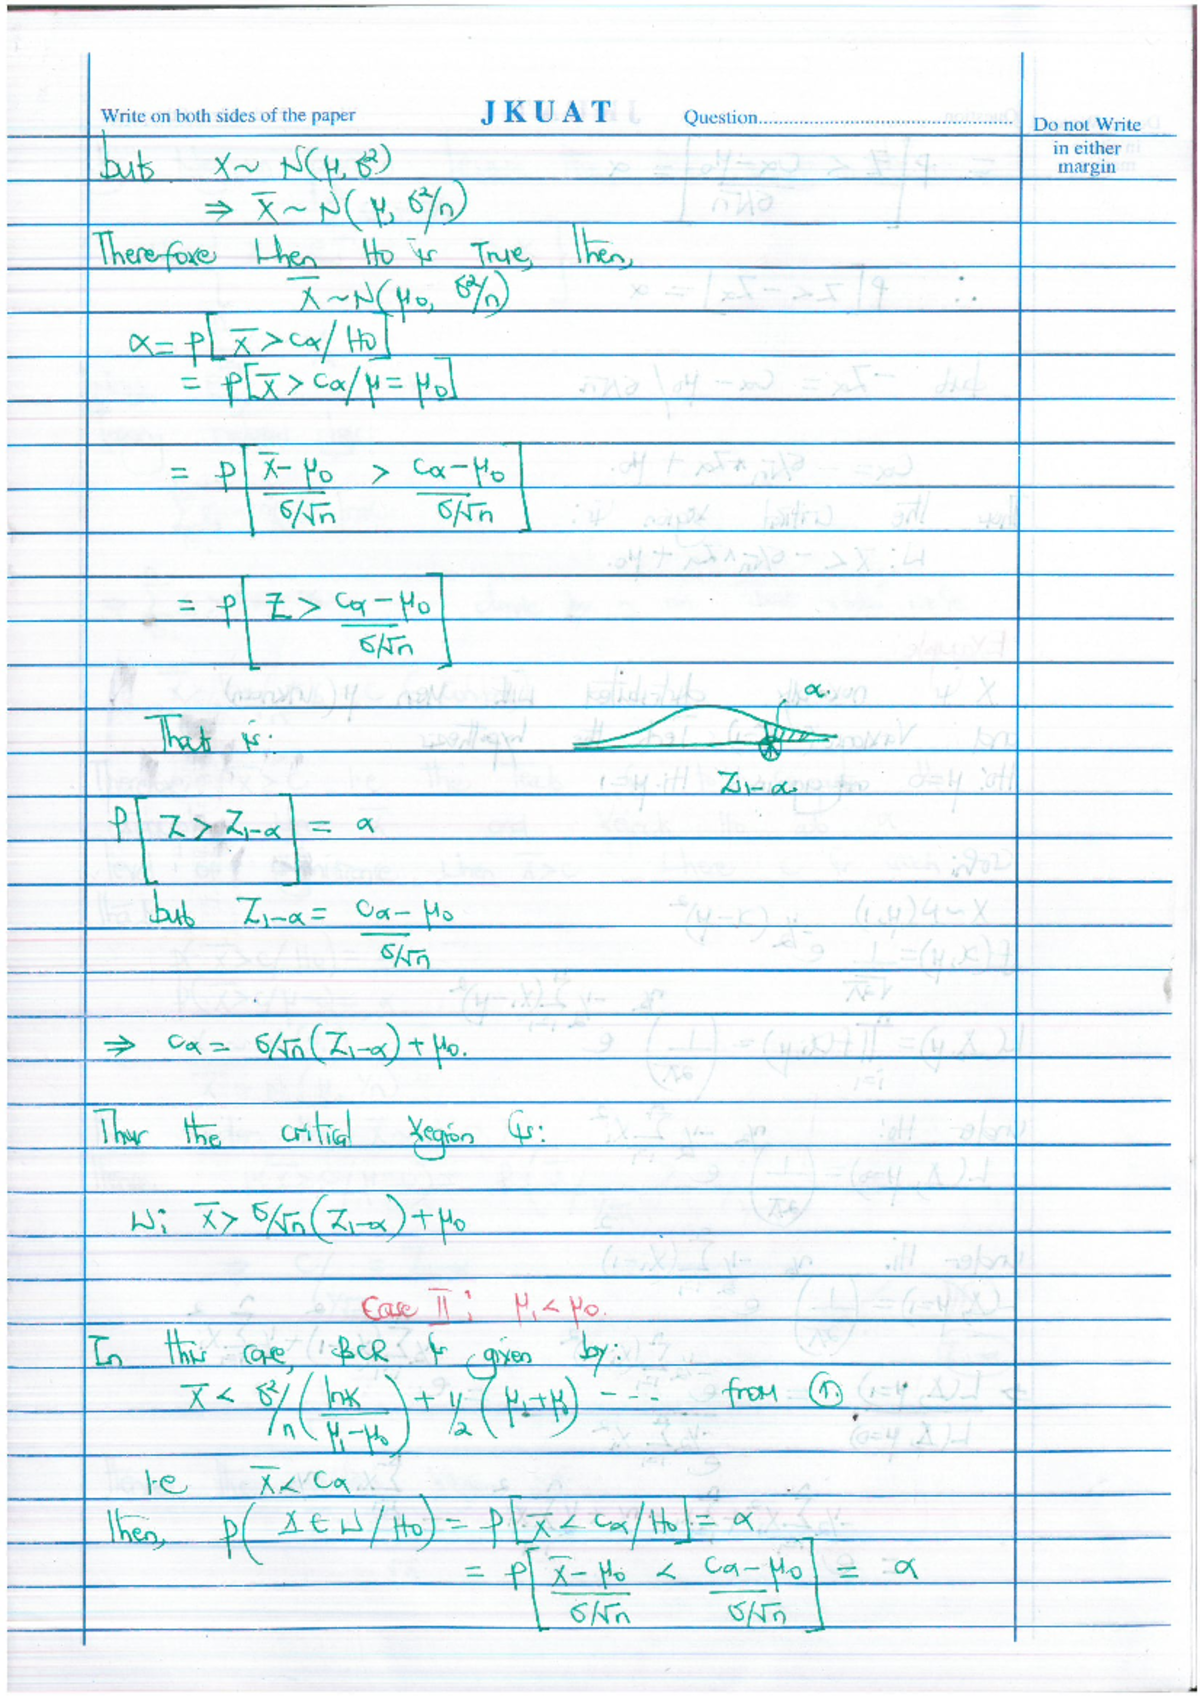 Write on both sides of the paper JKUAT Question........................ Do not Write in either margin
but X ~ N(μ, σ²)
⇒ X̄ ~ N(μ, σ²/n)
Therefore when Ho is True, then,
X̄ ~ N(μ₀, σ²/n)
α = P[X̄ > Cα / Ho]
= P[X̄ > Cα / μ = μ₀]
= P[(X̄ - μ₀)/(σ/√n) > (Cα - μ₀)/(σ/√n)]
= P[Z > (Cα - μ₀)/(σ/√n)]
α.
That is:
Z₁₋α.
P[Z > Z₁₋α] = α
but Z₁₋α = (Cα - μ₀)/(σ/√n)
⇒ Cα = σ/√n (Z₁₋α) + μ₀.
Thus the critical region is:
W: X̄ > σ/√n (Z₁₋α) + μ₀
Case II: μ₁ < μ₀.
In this case, BCR is given by:
X̄ < σ²/n (lnk/(μ₁ - μ₀)) + ½ (μ₁ + μ₀) --- from ①
i.e X̄ < Cα
then, P(X ∈ W / Ho) = P[X̄ < Cα / Ho] = α
= P[(X̄ - μ₀)/(σ/√n) < (Cα - μ₀)/(σ/√n)] = α